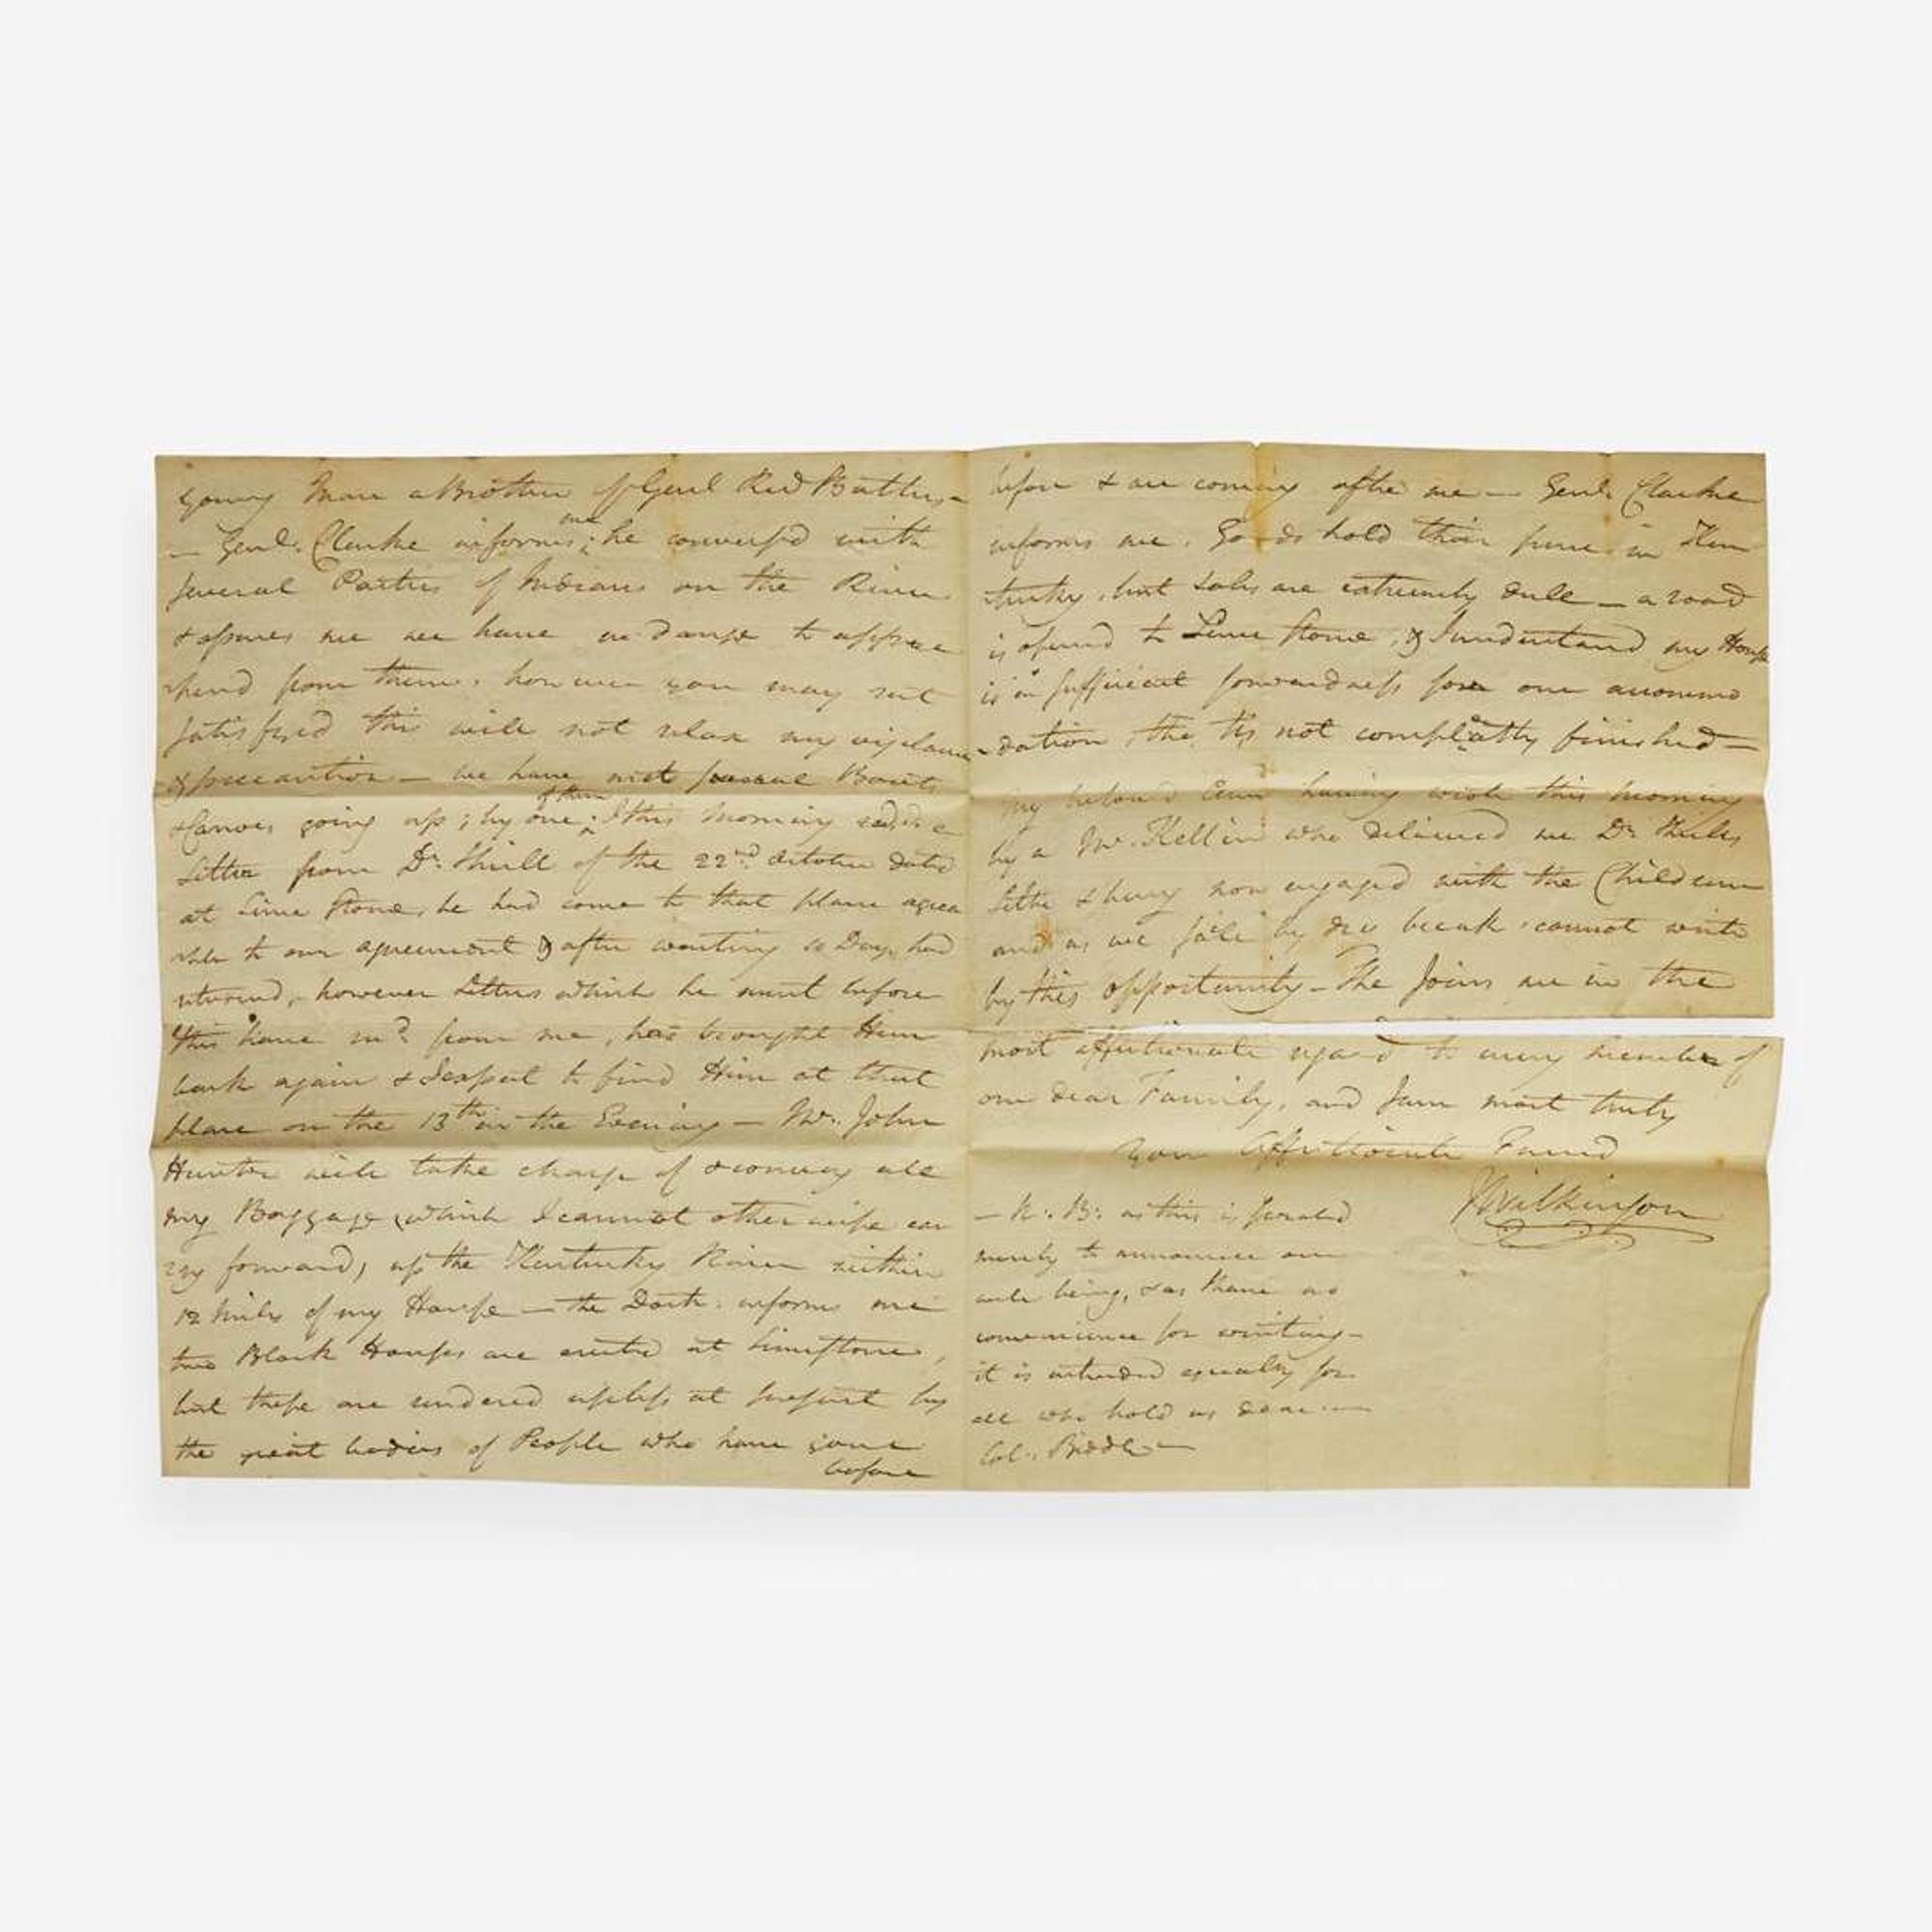 young Man a Brother of Genl Rid Butler,
— Genl. Clarke informs me he convers'd with
several Parties of Indians on the River
& assures me we have no danger to appre
hend from them, however you may rest
satisfyed this will not relax my vigilance
& precaution — we have met several Boats
& Canoes going up; by one of them I this Morning recd. a
Letter from Dr. Skull of the 22nd. October dated
at Lime Stone, he had come to that place agrea
able to our agreement & after waiting 10 Days, had
returned, however Letters which he must before
this have recd. from me, has brought Him
back again & I expect to find Him at that
place on the 13th in the Evening — Mr. John
Hunter will take charge of & convey all
my Baggage (which I cannot otherwise car
ry forward) up the Kentucky River within
12 Miles of my House — the Doctr. informs me
two Block Houses are erected at Limestone,
but these are rendered useless at present by
the great bodies of People who have gone
before
before & are coming after me — Genl. Clarke
informs me. Goods hold their price in Ken
tucky, but sales are extremely dull — a road
is opened to Lime Stone, & I understand my House
is in sufficient forwardness for our accommo
dation, tho' tis not compleatly finished —
My belov'd having wrote this Morning
by a Mr. who delivered me Dr.
Letter & being now engaged with the Children
and as we sail by day break, cannot write
by this opportunity — She Joins me in the
most affectionate regard to every member of
our dear Family, and I am most truly
Your Affectionate Friend
JWilkinson
— N. B. as this is
merely to announce our
well being, & as I have no
convenience for writing —
it is intended equally for
all who hold us dear. —
Col. Biddle —